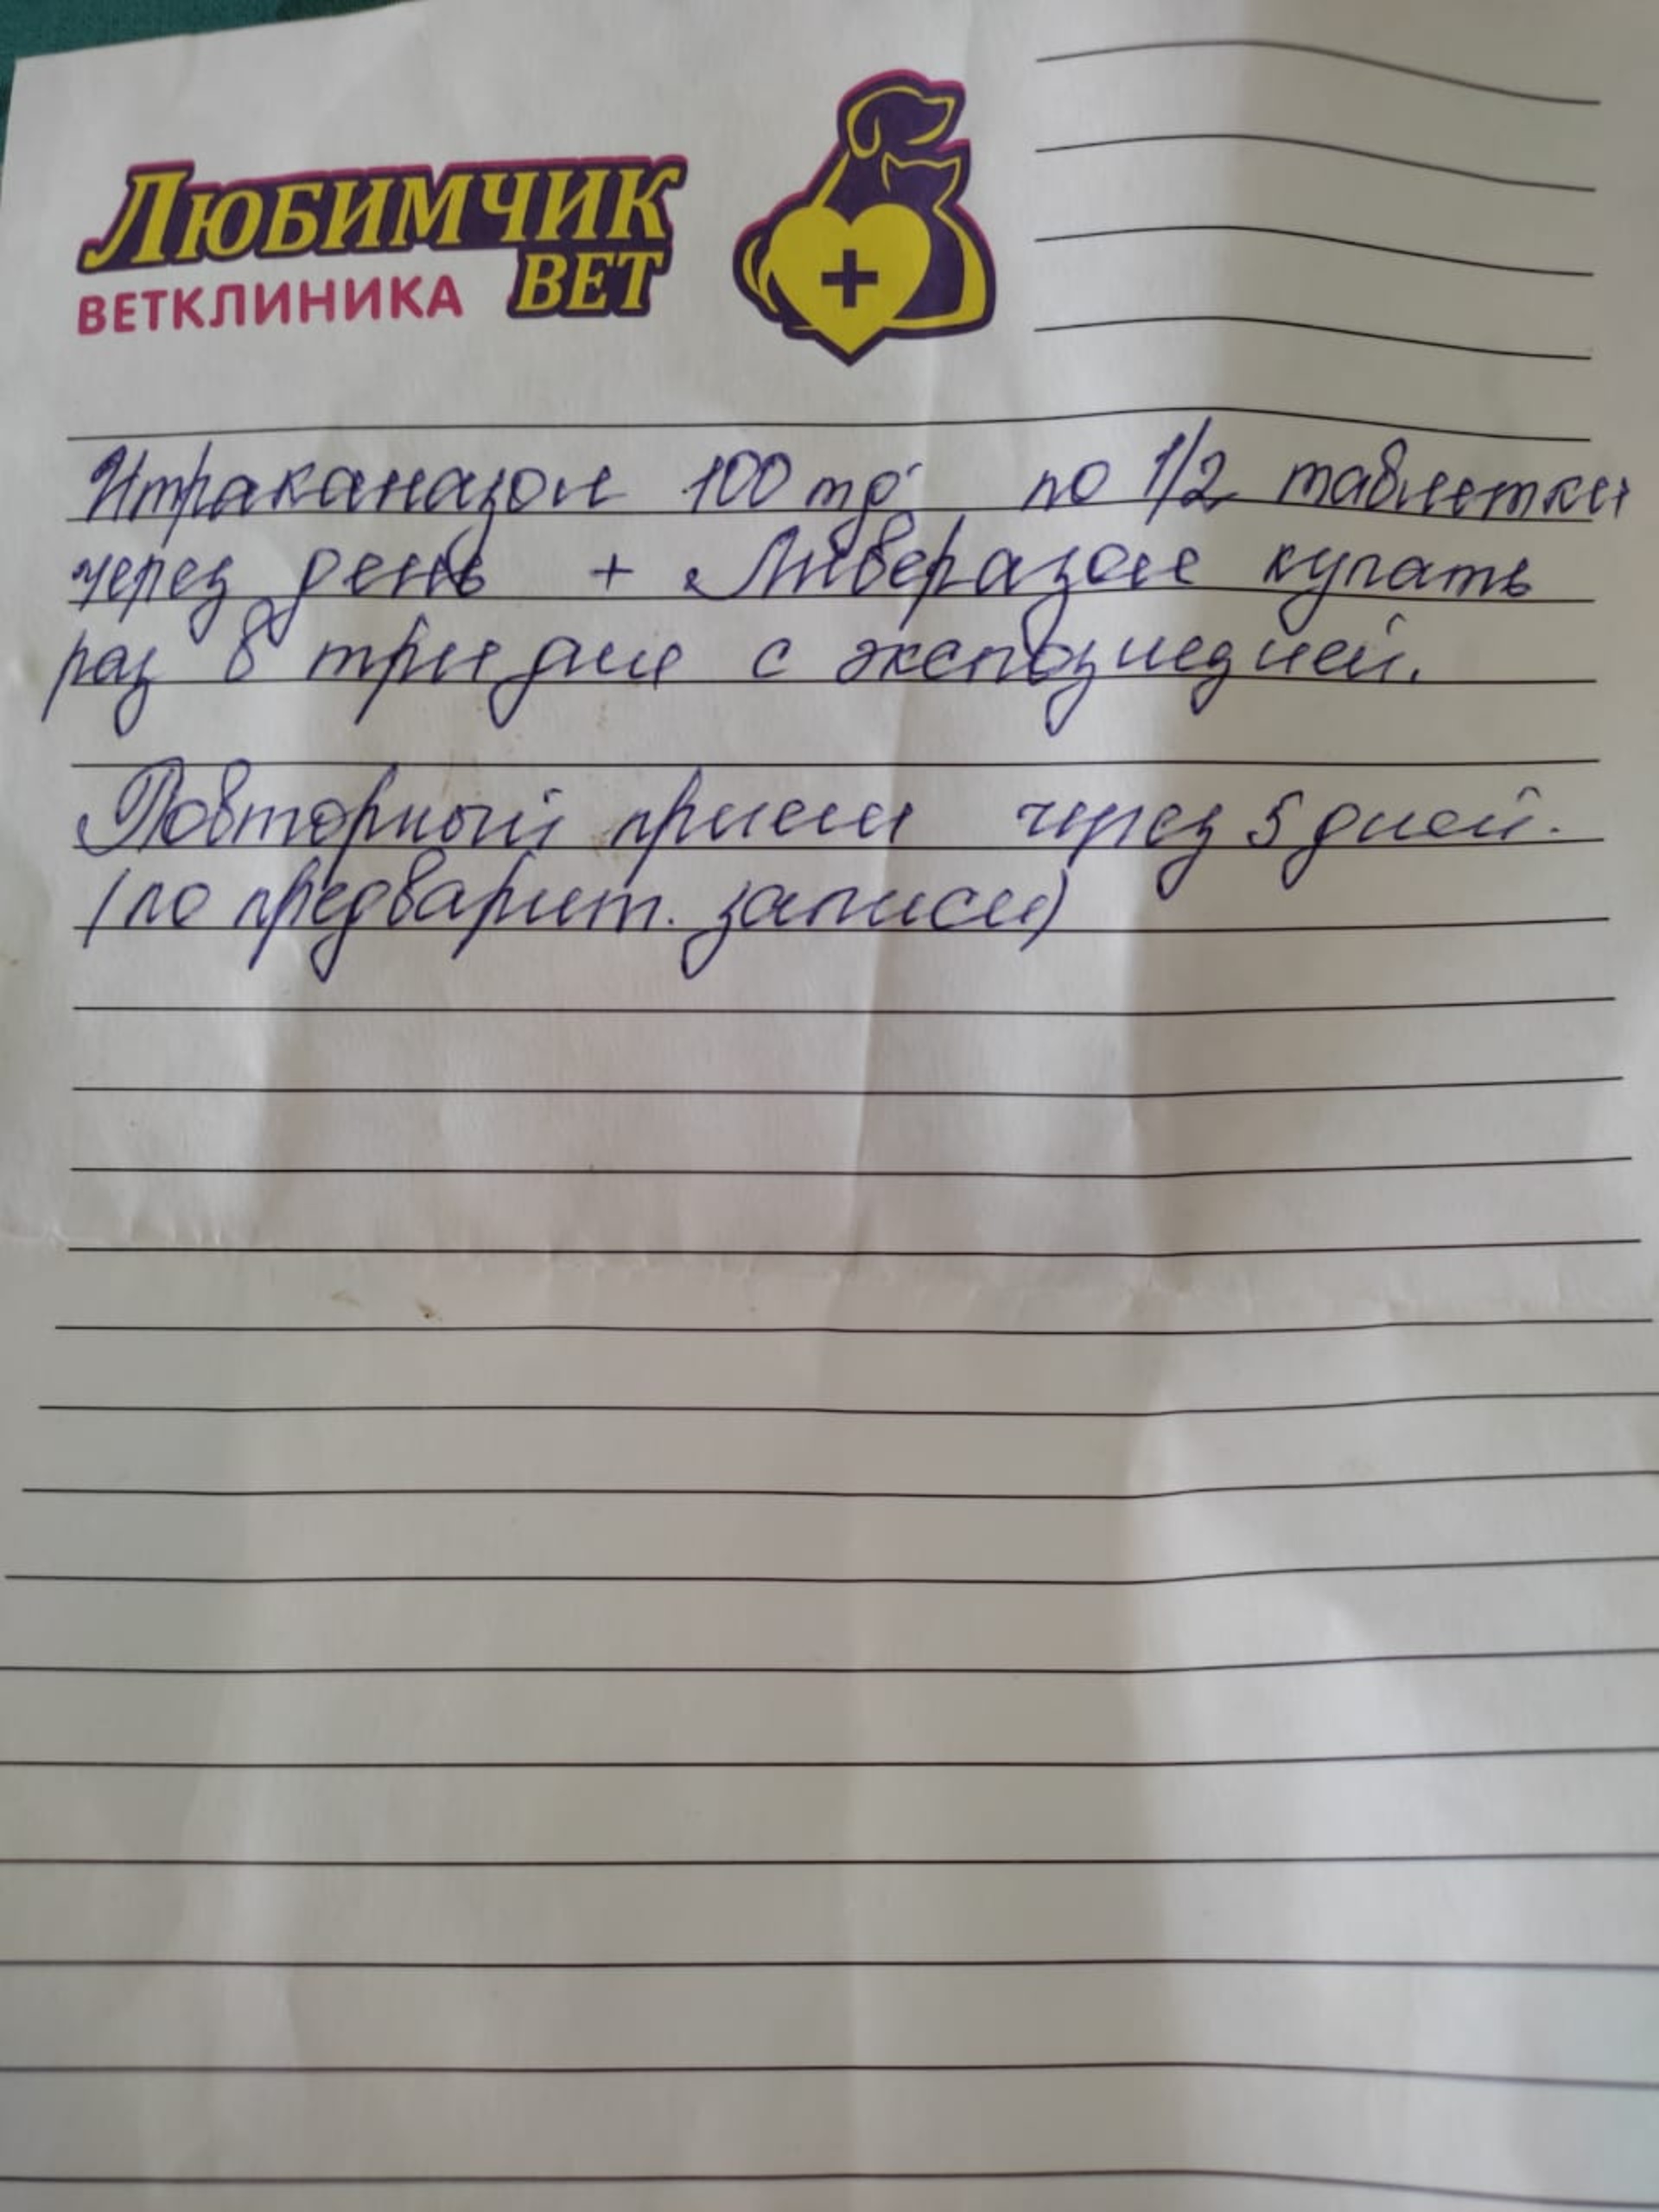 ЛЮБИМЧИК
ВЕТКЛИНИКА ВЕТ
Итраканазол 100 mg по 1/2 таблетки
через день + Ливеразол купать
раз в три дня с экспозицией.
Повторный прием через 5 дней.
(по предварит. записи)